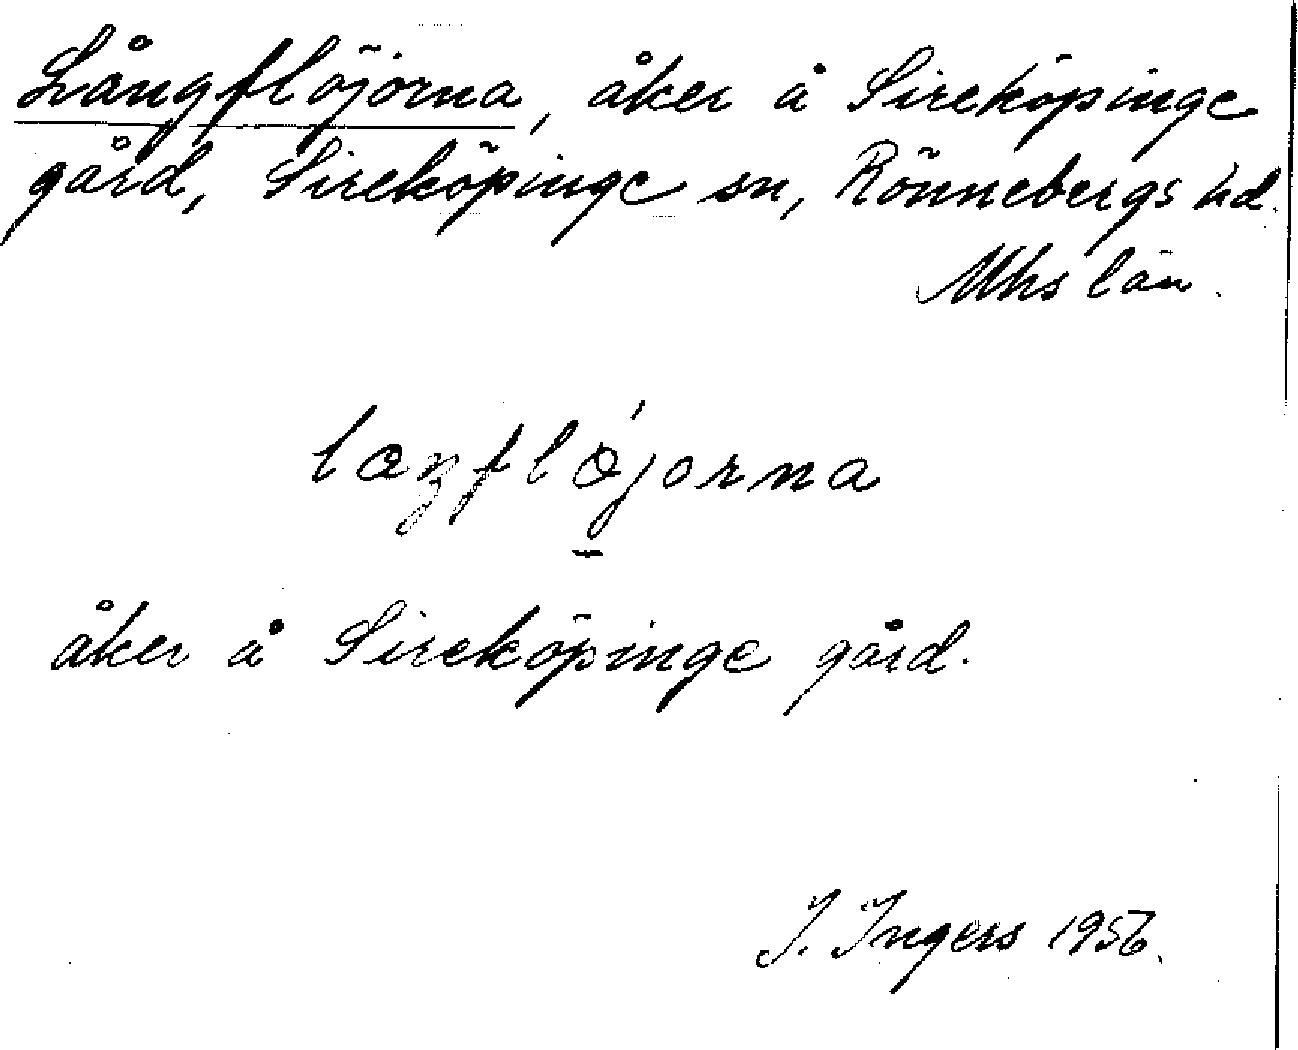 Långflöjorna, åker å Sireköpinge
gård, Sireköpinge sn, Rönnebergs hd.
Mhs län.
åker å Sireköpinge gård.
I. Ingers 1956.